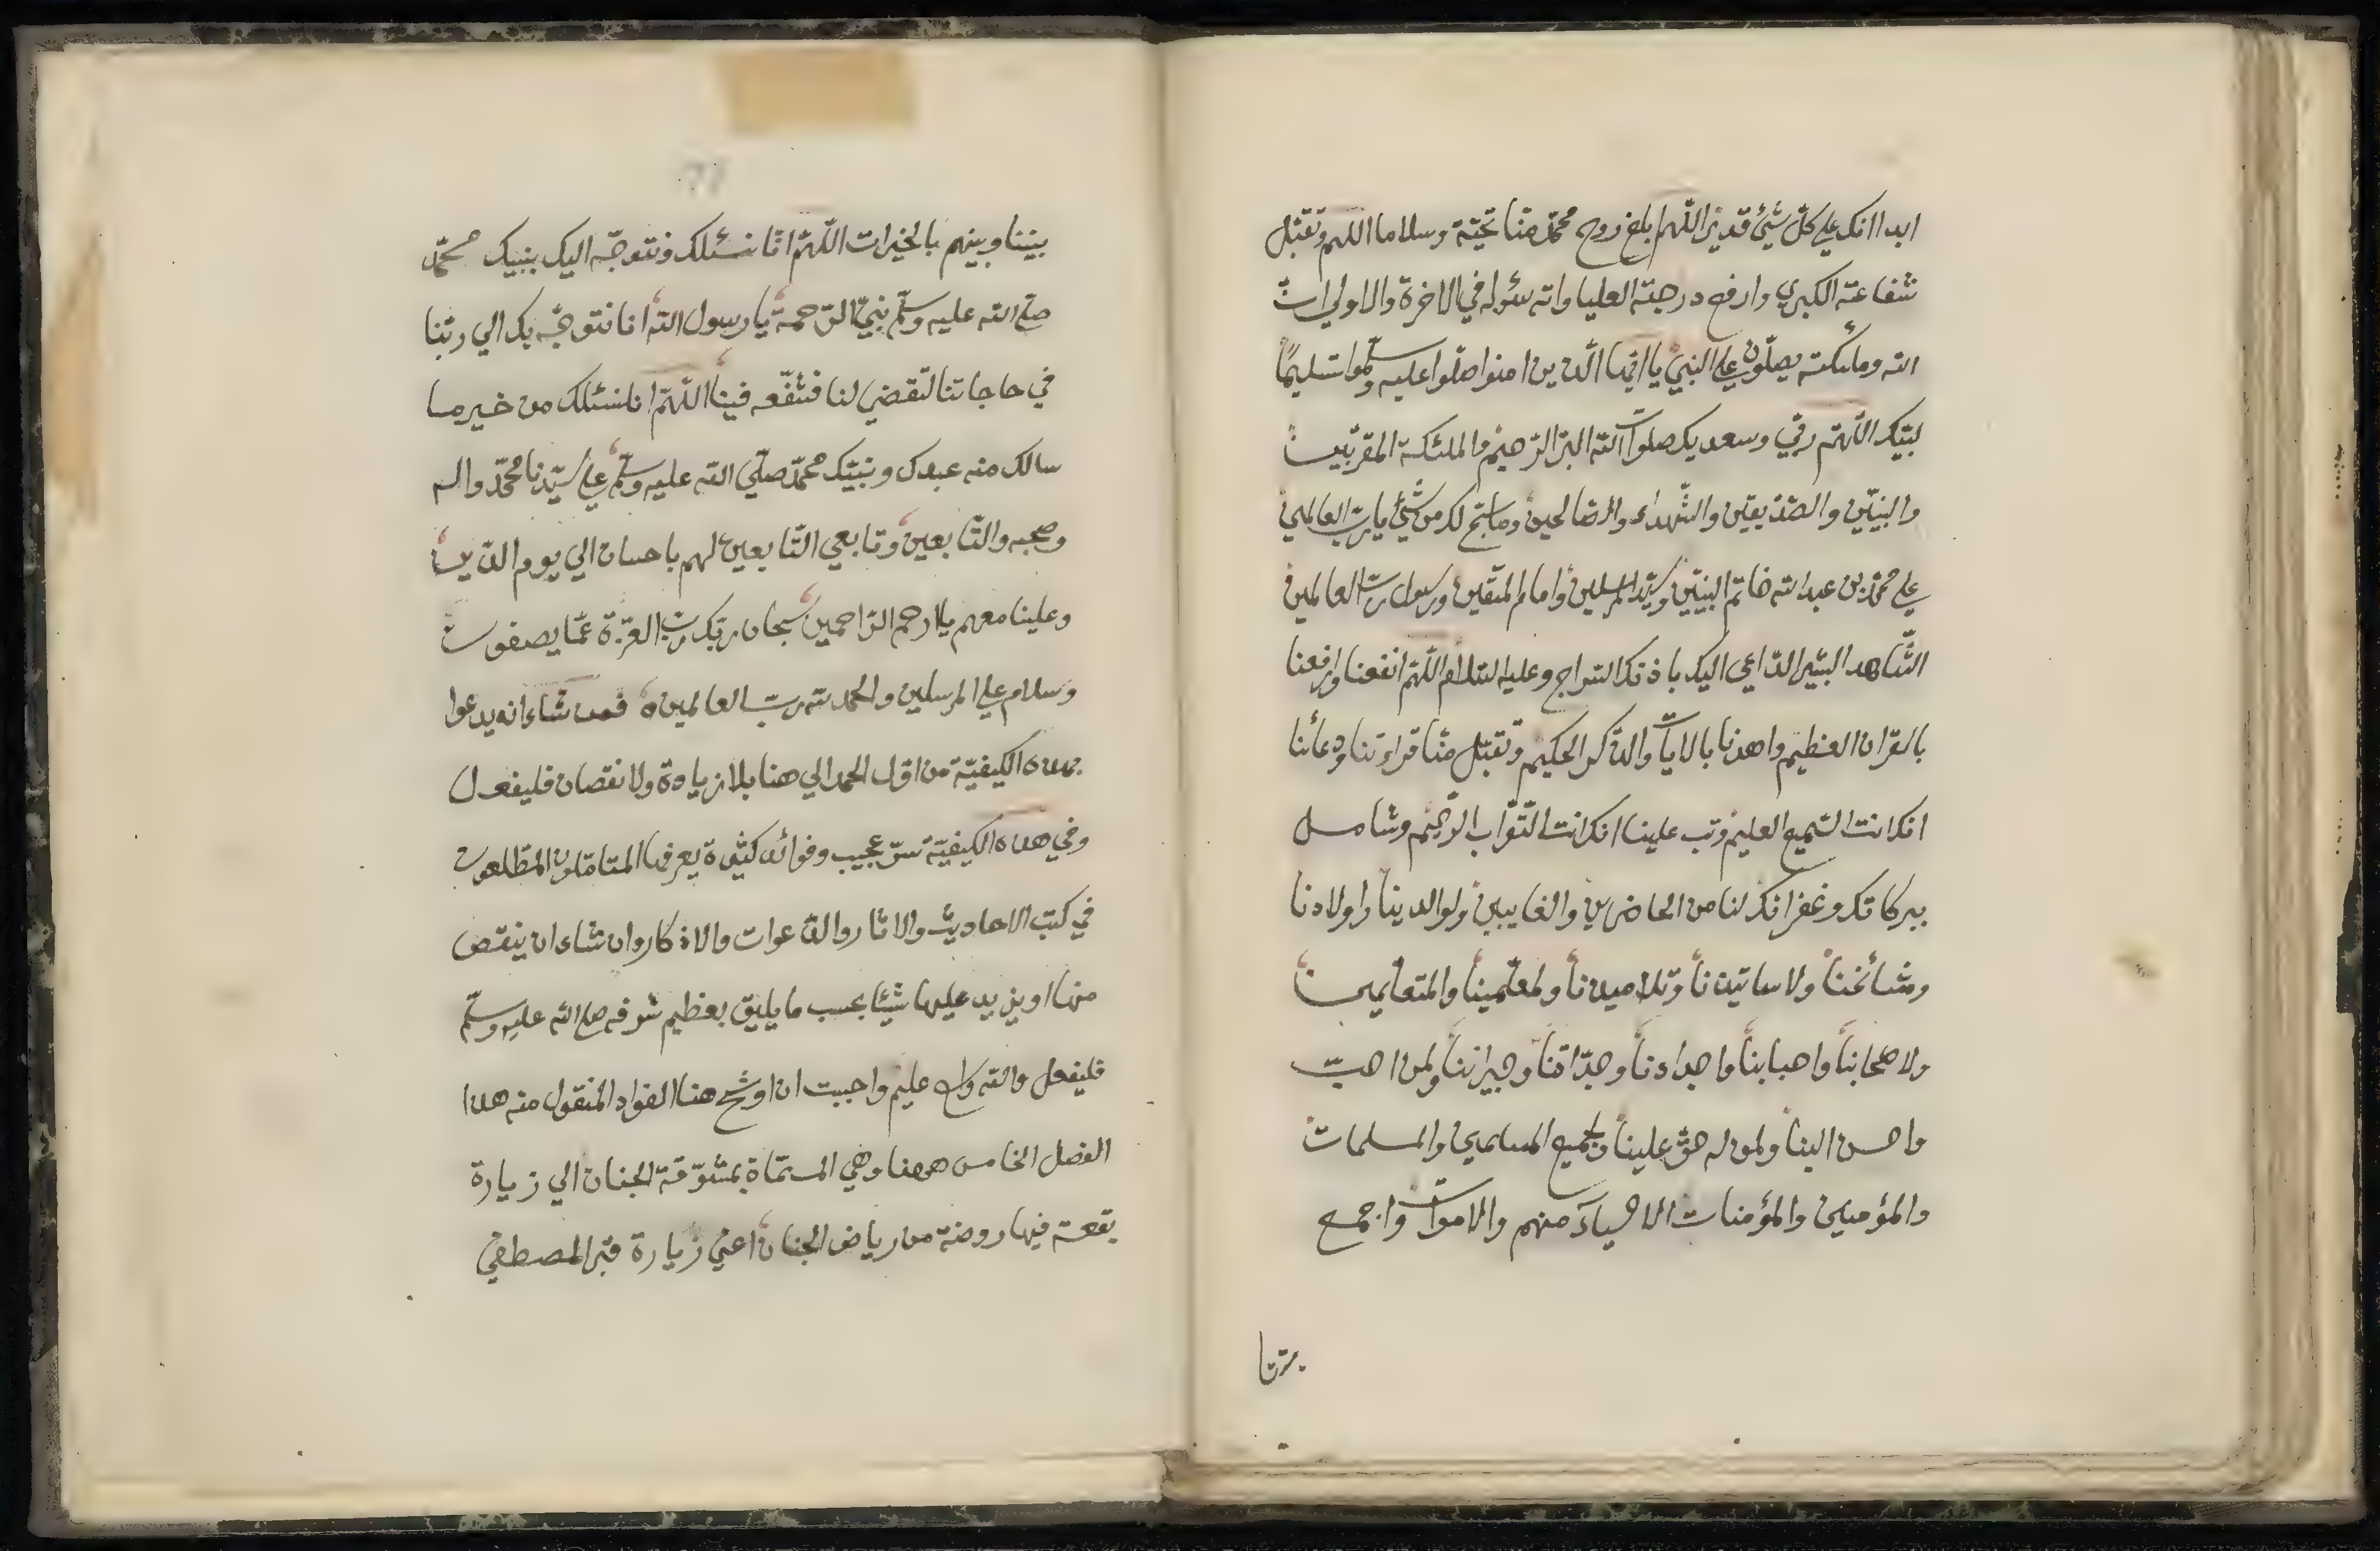 ابدا انك علي كلّ شيئ قدير اللّهم ابلغ روح محمّد منّا تحيّة وسلاما اللهم وتقبّل
شفاعته الكبري وارفع درجته العليا واته سئوله في الاخرة والاولي ان
الله وملئكته يصلّون علي النبيّ يا ايّها الّذين امنوا صلّوا عليه وسلّموا تسليمًا
لبّيك اللّهمّ ربّي وسعديك صلوات الله البرّ الرّحيم والملئكة المقرّبين
والنبيّين والصّدّيقين والشّهداء والصّالحين وما سبّح لك من شيئ يا ربّ العالمين
علي محمّد بن عبد الله خاتم النبيّين وسيّد المرسلين وامام المتّقين ورسول ربّ العالمين
الشّاهد البشير الدّاعي اليك باذنك السّراج وعليه السّلام اللّهمّ انفعنا وارفعنا
بالقرآن العظيم واهدنا بالايات والذّكر الحكيم وتقبّل منّا قراءتنا ودعائنا
انك انت السّميع العليم وتب علينا انك انت التّوّاب الرّحيم وشامل
ببركاتك وغفرانك لنا من الحاضرين والغايبين ولوالدينا واولادنا
ومشائخنا ولاساتيذنا وتلاميذنا ولمعلّمينا والمتعلّمين
ولاصحابنا واحبابنا واجدادنا وجدّاتنا وجيراننا ولمن احبّ
واحسن الينا ولمن له حقّ علينا ولجميع المسلمين والمسلمات
والمؤمنين والمؤمنات الاحياء منهم والاموات واجمع
بيننا
بيننا وبينهم بالخيرات اللّهمّ انّا نسئلك ونتوجّه اليك بنبيك محمّد
صلّي الله عليه وسلّم نبيّ الرّحمة يا رسول الله انا نتوجّه بك الي ربّنا
في حاجاتنا لتقضي لنا فشفّعه فينا اللّهمّ انا نسئلك من خير ما
سالك منه عبدك ونبيّك محمّد صلّي الله عليه وسلّم علي سيّدنا محمّد واله
وصحبه والتّابعين وتابعي التّابعين لهم باحسان الي يوم الدّين
وعلينا معهم يا ارحم الرّاحمين سبحان ربّك ربّ العزّة عمّا يصفون
وسلام علي المرسلين والحمد لله ربّ العالمين ٥ فمن شاء انه يدعوا
بهذه الكيفيّة من اوّل الحمد الي هنا بلا زيادة ولا نقصان فليفعل
وفي هذه الكيفيّة سرّ عجيب وفوائد كثيرة يعرفها المتامّلون المطّلعون
في كتب الاحاديث والاثار والدّعوات والاذكار وان شاء ان ينقص
منها او يزيد عليها شيئا بحسب ما يليق بعظيم شرفه صلي الله عليه وسلّم
فليفعل والله واسع عليم واحببت ان اوشّح هنا الفواد المنقول منه هذا
الفصل الخامس ههنا وهي المسمّاة بمشوّقة الجنان الي زيارة
بقعة فيها روضة من رياض الجنان اعني زيارة قبر المصطفي